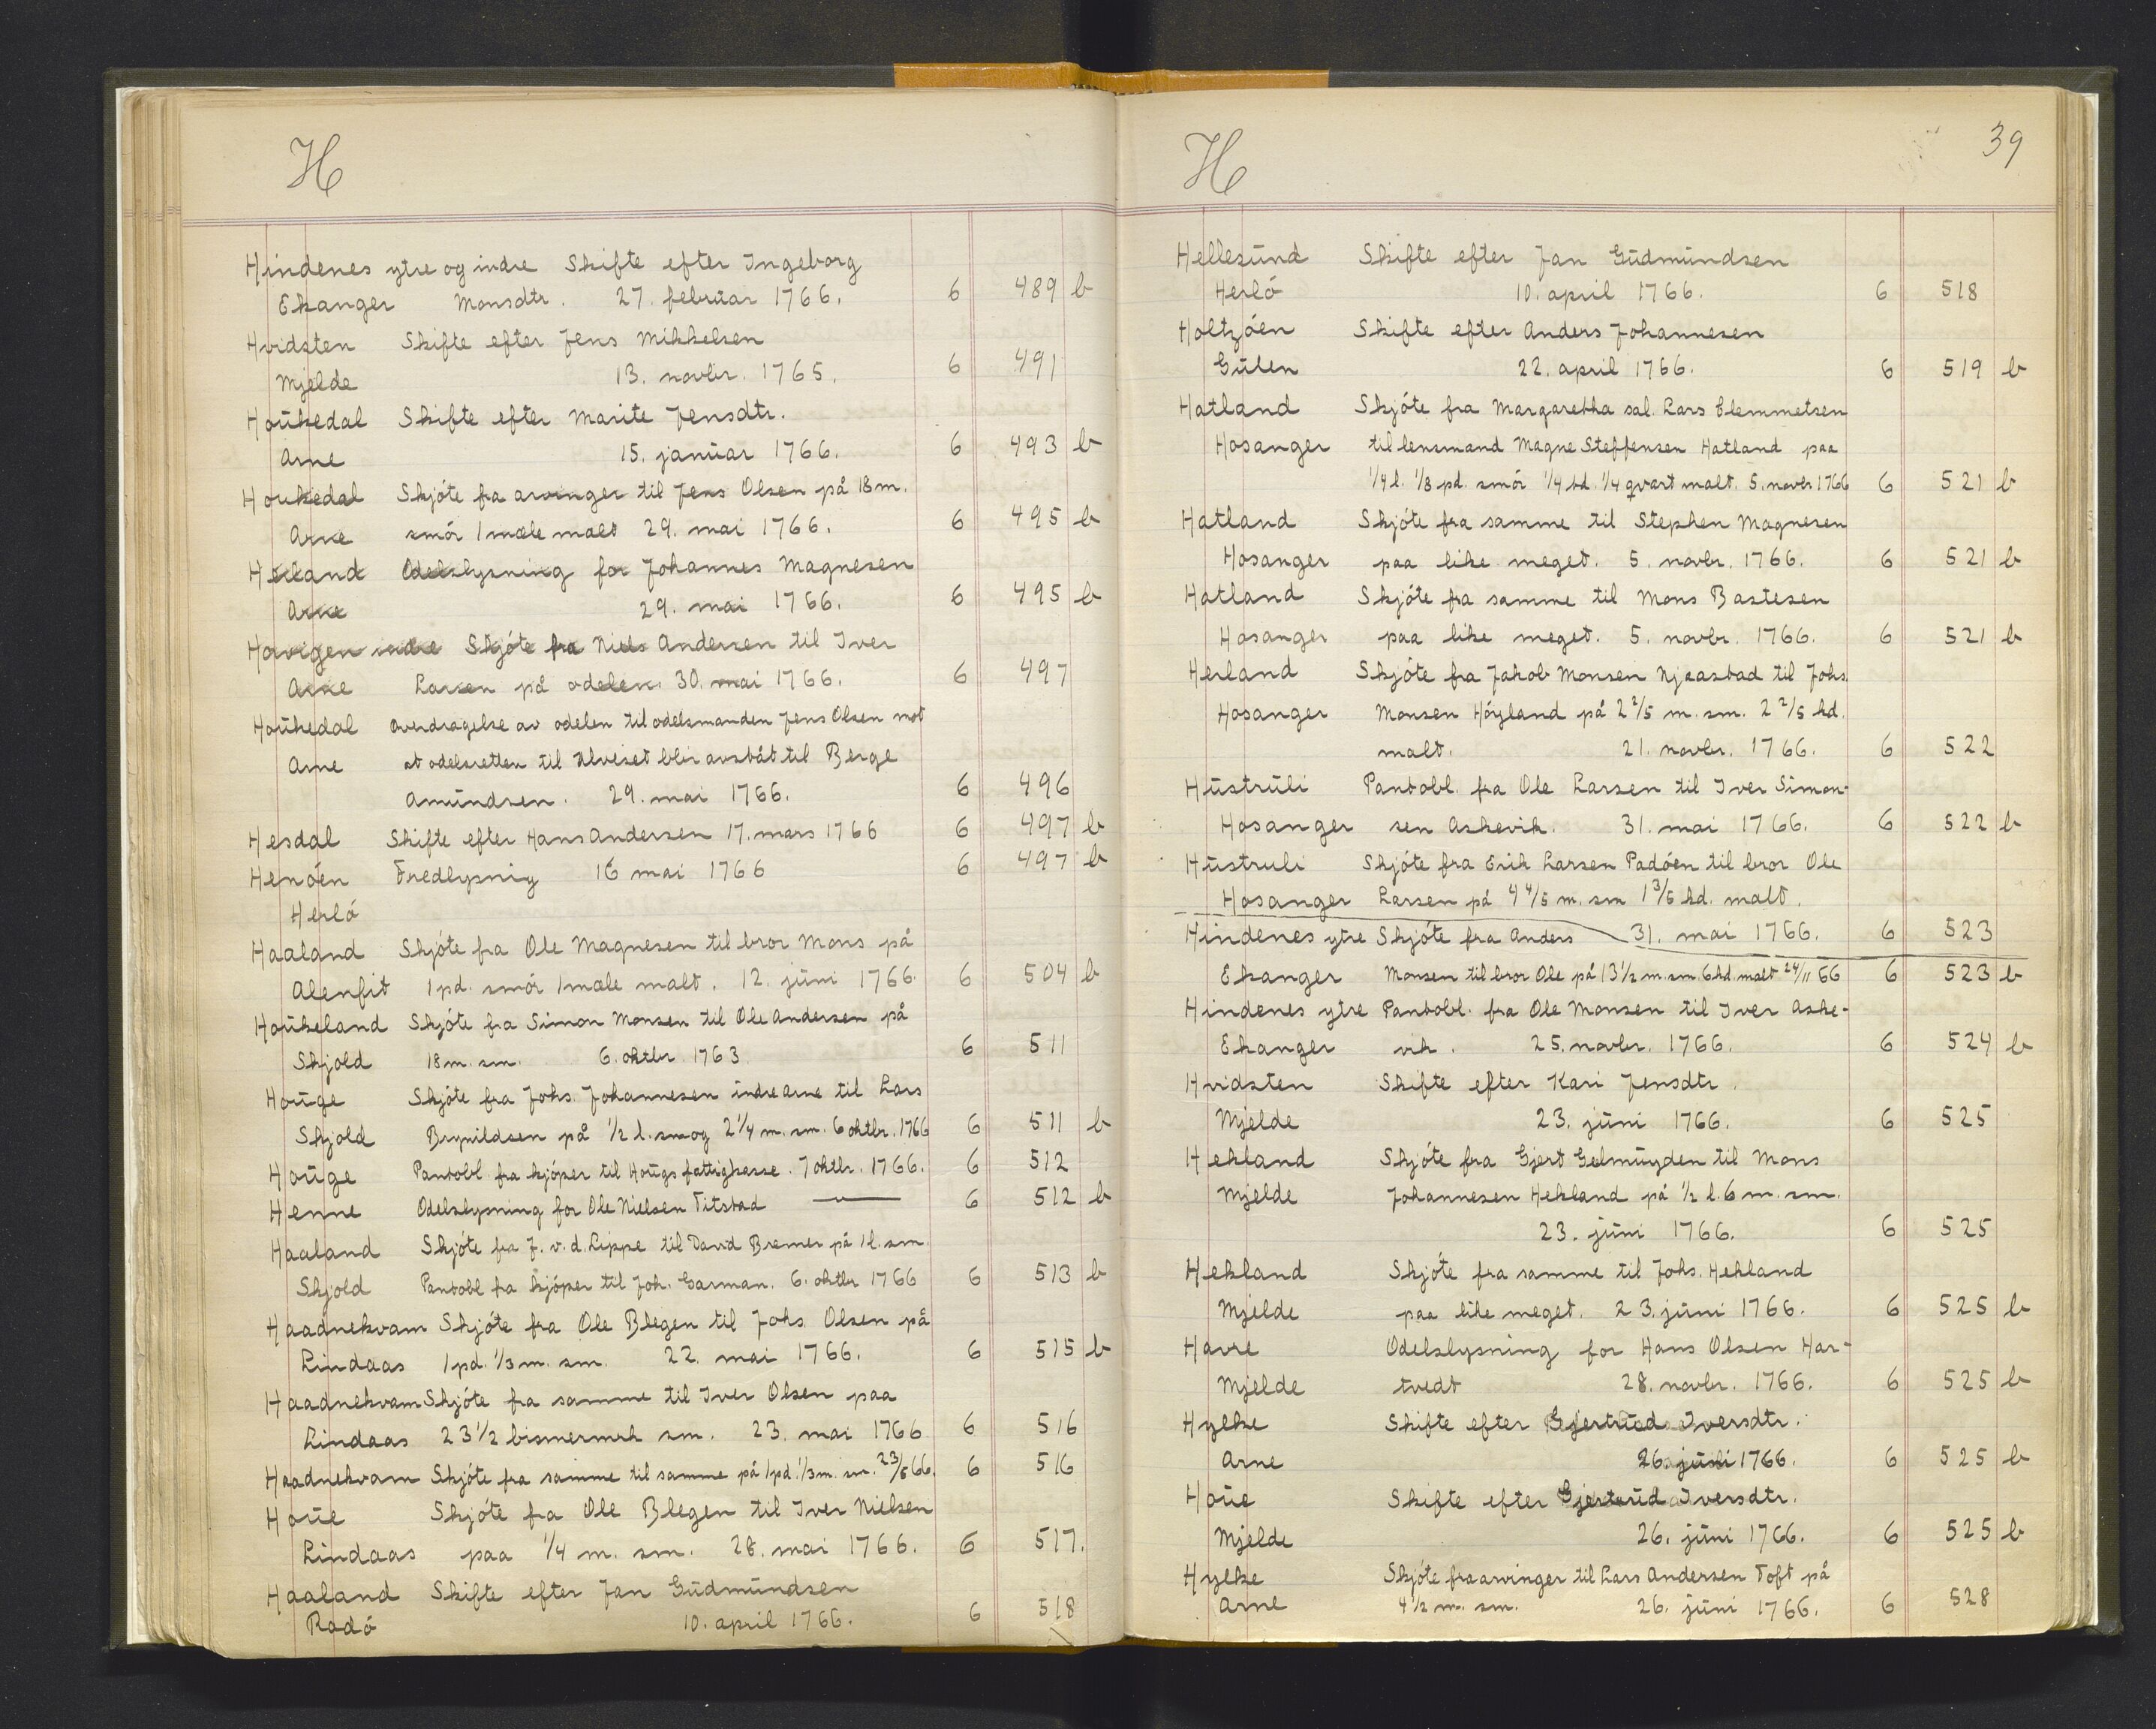 H
Hindenes ytre og indre Skifte efter Ingeborg
Ekanger Monsdtr. 27. februar 1766. 6 489 b
Hvidsten Skifte efter Jens Mikkelsen
Mjelde 13. novbr. 1765. 6 491
Houkedal Skifte efter Marite Jensdtr.
Arne 15. januar 1766. 6 493 b
Houkedal Skjóte fra arvinger til Jens Olsen på 18 m.
Arne smór 1 mæle malt 29. mai 1766. 6 495 b
Herland Odelslysning for Johannes Magnesen
Arne 29. mai 1766. 6 495 b
Horvigen indre Skjóte fra Niels Andersen til Iver
Arne Larsen på odelen 30. mai 1766. 6 497
Houkedal Overdragelse av odelen til odelsmanden Jens Olsen mot
Arne at odelsretten til Ulveset blir avståt til Berge
Amundsen. 29. mai 1766. 6 496
Hesdal Skifte efter Hans Andersen 17. mars 1766 6 497 b
Henóen Fredlysnig 16 mai 1766 6 497 b
Herló
Haaland Skjóte fra Ole Magnesen til bror Mons på
Alenfit 1 pd. smór 1 mæle malt. 12. juni 1766. 6 504 b
Houkeland Skjóte fra Simon Monsen til Ole Andersen på
Skjold 18 m. sm. 6. oktbr. 1763 6 511
Houge Skjóte fra Johs. Johannesen indre Arne til Lars
Skjold Brynildsen på 1/2 l. sm og 2 1/4 m. sm. 6 oktbr. 1766 6 511 b
Houge Pantobl. fra kjóper til Hougs fattigkasse. 7 oktbr. 1766. 6 512
Henne Odelslysning for Ole Nielsen Titstad —"— 6 512 b
Haaland Skjóte fra J. v. d. Lippe til David Bremer på 1 l. sm.
Skjold Pantobl fra kjóper til Joh. Garman. 6. oktbr 1766 6 513 b
Haadnekvam Skjóte fra Ole Blegen til Johs. Olsen på
Lindaas 1 pd. 1/3 m. sm. 22. mai 1766. 6 515 b
Haadnekvam Skjóte fra samme til Iver Olsen paa
Lindaas 23 1/2 bismermrk sm. 23. mai 1766 6 516
Haadnekvam Skjóte fra samme til samme på 1 pd. 1/3 m. sm. 23/5 66. 6 516
Houe Skjóte fra Ole Blegen til Iver Nielsen
Lindaas paa 1/4 m. sm. 28. mai 1766. 6 517.
Haaland Skifte efter Jan Gudmundsen
Radó 10. april 1766. 6 518
H 39
Hellesund Skifte efter Jan Gudmundsen
Herló 10. april 1766. 6 518
Holtzóen Skifte efter Anders Johannesen
Gulen 22. april 1766. 6 519 b
Hatland Skjóte fra Margaretha sal. Lars Clemmetsen
Hosanger til lensmand Magne Steffensen Hatland paa
1/4 l. 1/8 pd. smór 1/4 hd. 1/4 qvart malt. 5. novbr 1766 6 521 b
Hatland Skjóte fra samme til Stephen Magnesen
Hosanger paa like meget. 5. novbr. 1766. 6 521 b
Hatland Skjóte fra samme til Mons Bastesen
Hosanger paa like meget. 5. novbr. 1766. 6 521 b
Herland Skjóte fra Jakob Monsen Njaastad til Johs.
Hosanger Monsen Hóyland på 2 2/5 m. sm. 2 2/5 hd.
malt. 21. novbr. 1766. 6 522
Hustruli Pantobl. fra Ole Larsen til Iver Simon-
Hosanger sen Askevik. 31. mai 1766. 6 522 b
Hustruli Skjóte fra Erik Larsen Padóen til bror Ole
Hosanger Larsen på 4 4/5 m. sm 1 3/5 hd. malt.
Hindenes ytre Skjóte fra Anders 31. mai 1766. 6 523
Ekanger Monsen til bror Ole på 13 1/2 m. sm. 6 hd. malt 24/11 66 6 523 b
Hindenes ytre Pantobl. fra Ole Monsen til Iver Aske-
Ekanger vik. 25. novbr. 1766. 6 524 b
Hvidsten Skifte efter Kari Jensdtr.
Mjelde 23. juni 1766. 6 525
Hekland Skjóte fra Gjert Gelmuyden til Mons
Mjelde Johannesen Hekland på 1/2 l. 6 m. sm.
23. juni 1766. 6 525
Hekland Skjóte fra samme til Johs. Hekland
Mjelde paa like meget. 23. juni 1766. 6 525 b
Havre Odelslysning for Hans Olsen Har-
Mjelde tvedt 28. novbr. 1766. 6 525 b
Hylke Skifte efter Gjertrud Iversdtr.
Arne 26. juni 1766. 6 525 b
Houe Skifte efter Gjertrud Iversdtr.
Mjelde 26. juni 1766. 6 525 b
Hylke Skjóte fra arvinger til Lars Andersen Toft på
Arne 4 1/2 m. sm. 26. juni 1766. 6 528